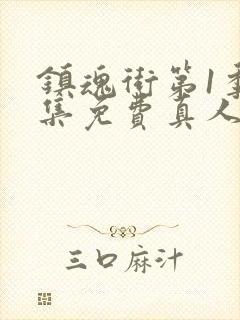 鎮魂街第1季
集免費真人
三口麻汁